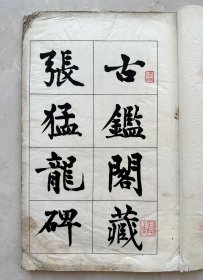 古鑑閣藏
張猛龍碑